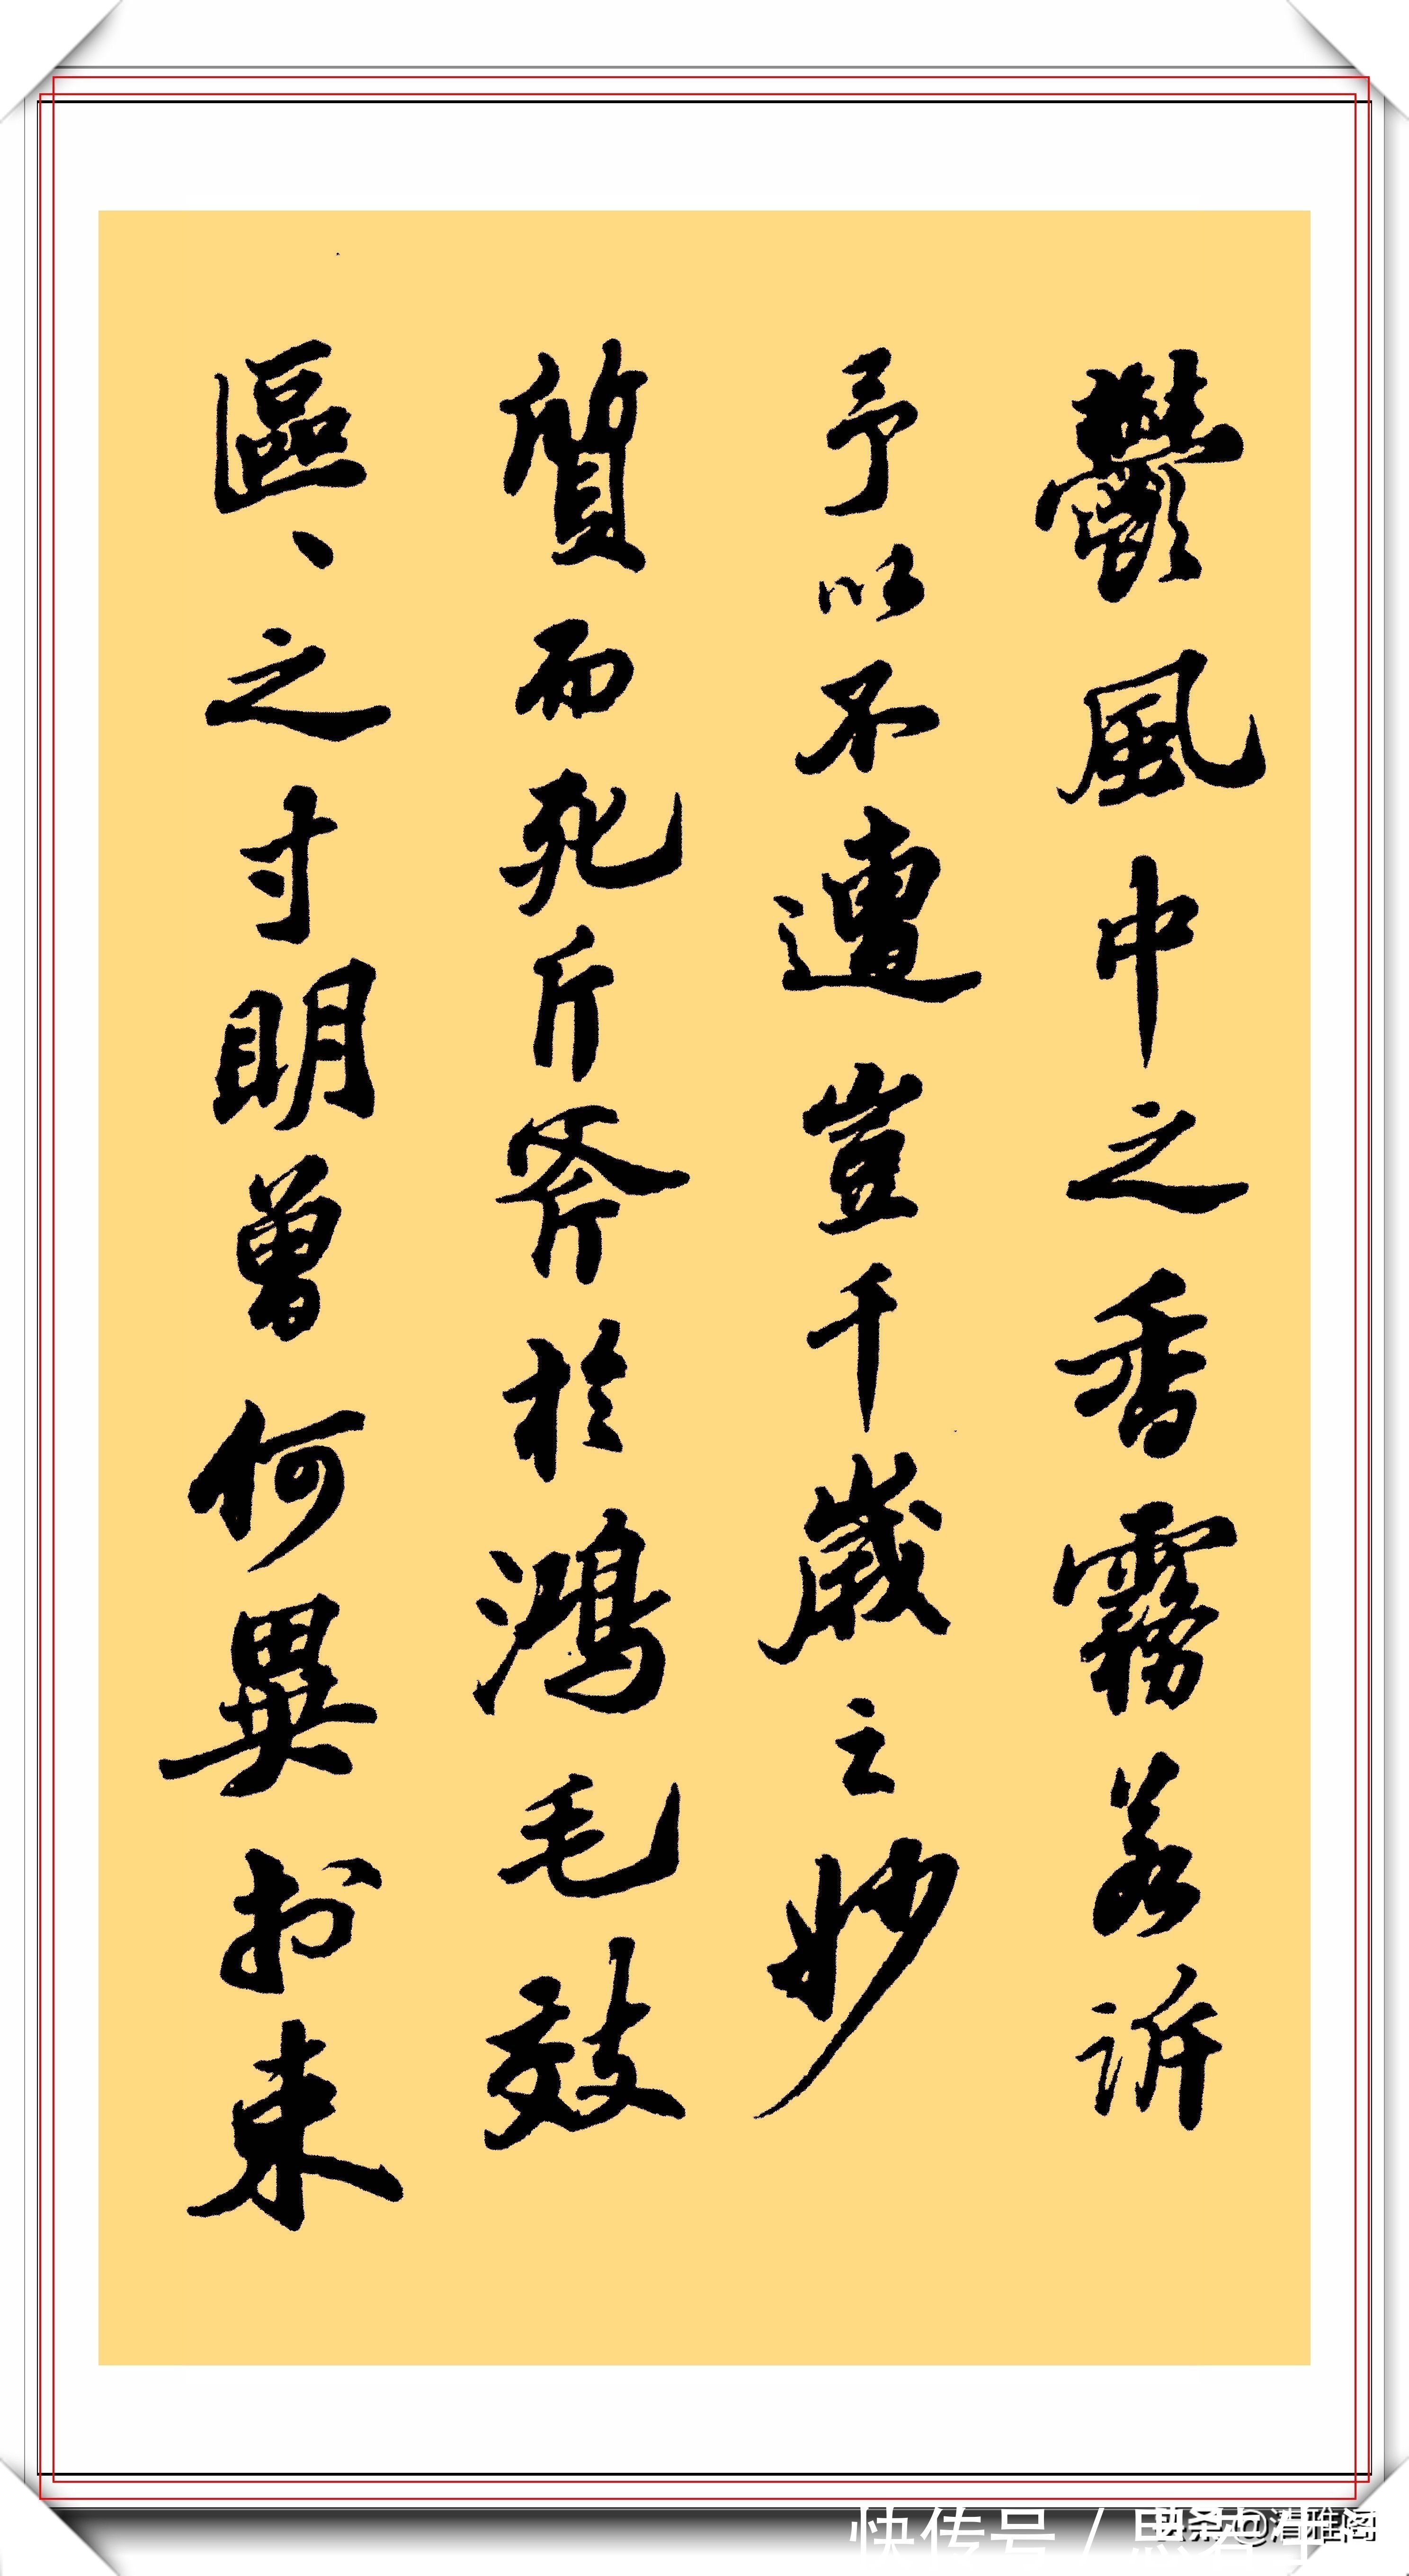 鬱風中之香霧若訴
予以不遭豈千歲之妙
質而死斤斧於鴻毛效
區、之寸明曾何異於束
快传号/
头条@清雅阁